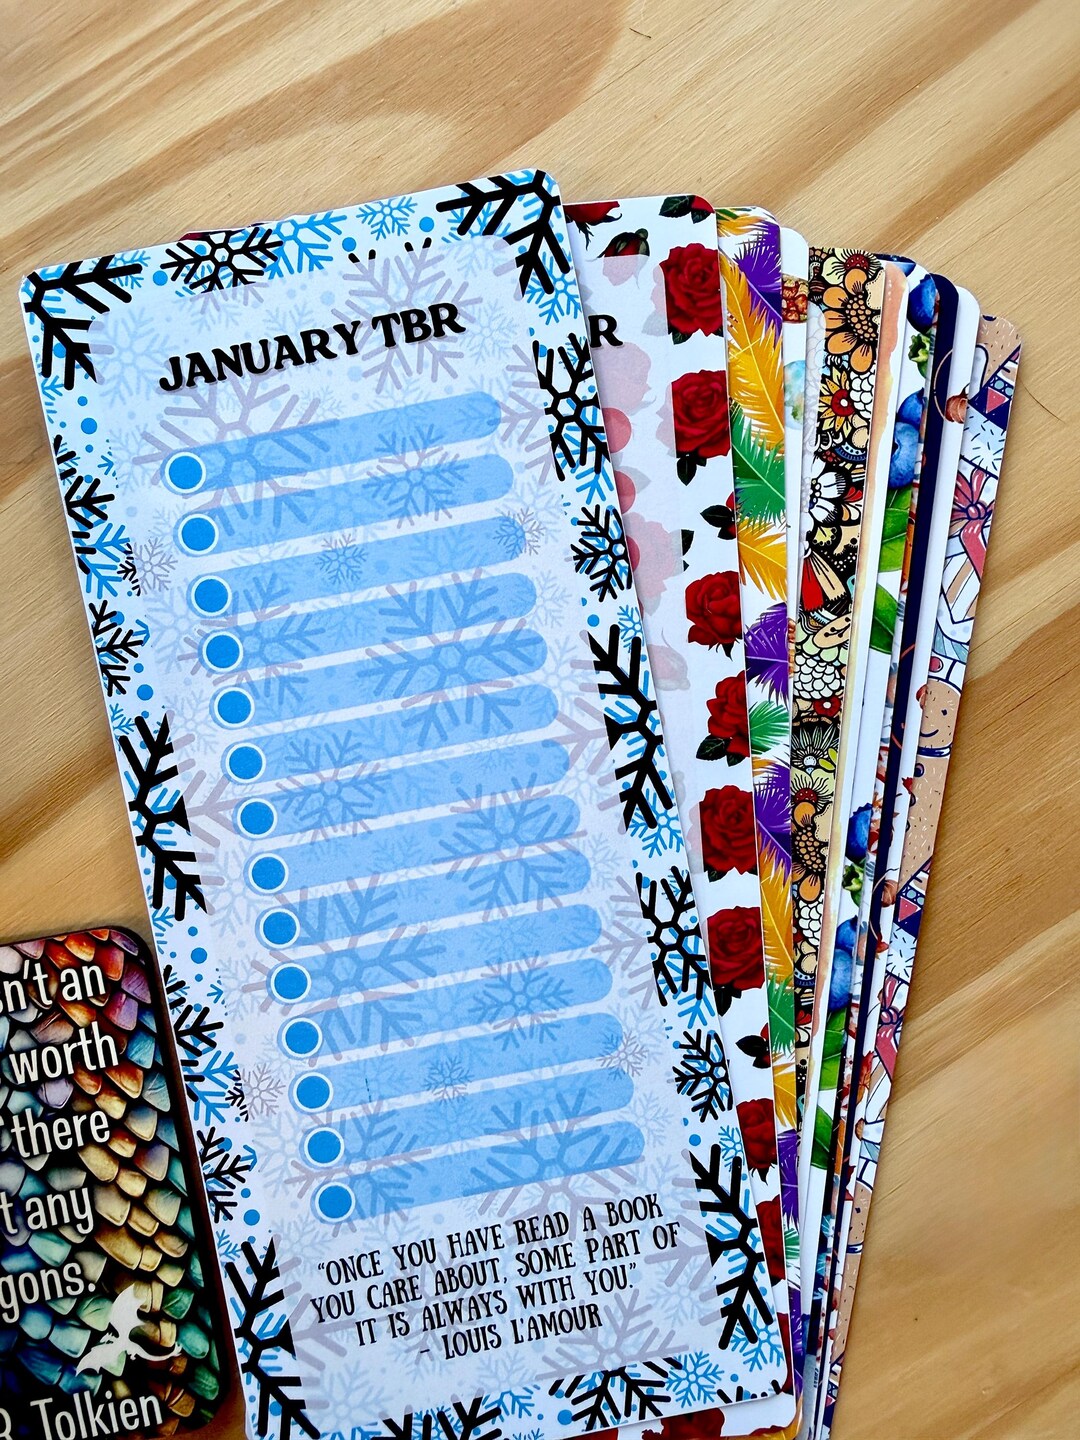 JANUARY TBR
R
“ONCE YOU HAVE READ A BOOK
YOU CARE ABOUT, SOME PART OF
IT IS ALWAYS WITH YOU.”
- LOUIS L'AMOUR
n't an
worth
there
t any
gons.
R. Tolkien